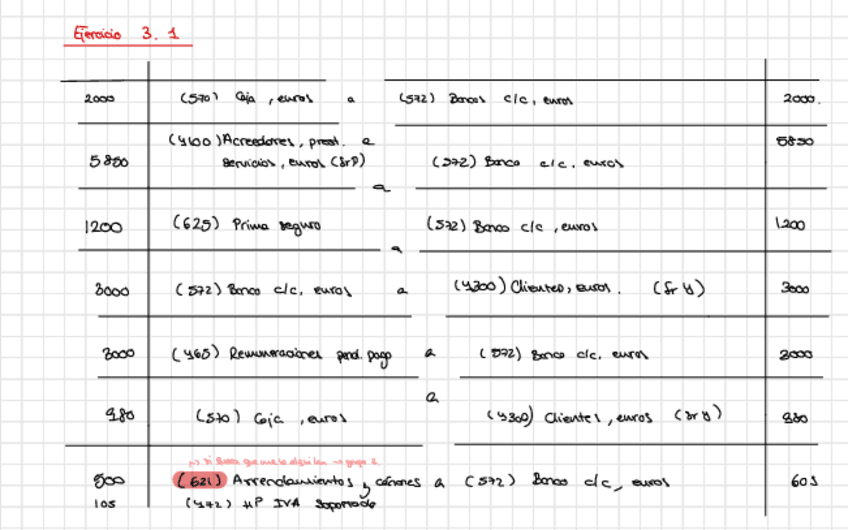 Ejercicio 3.1
2000 (570) Caja, euros a (572) Bancos c/c, euros 2000.
(4100) Acreedores, prest. a 5850
5850 servicios, euros (Sr P) (572) Banco c/c. euros
a
1200 (625) Prima seguro (572) Banco c/c, euros 1200
a
3000 (572) Banco c/c, euros a (4300) Clientes, euros. (Sr Y) 3000
3000 (465) Remuneraciones pend. pago a (572) Banco c/c. euros 3000
a
980 (570) Caja, euros (4300) Clientes, euros (Sr Y) 980
que me lo alquilan → grupo 2
500 (621) Arrendamientos y cánones a (572) Banco c/c, euros 605
105 (472) HP IVA Soportado